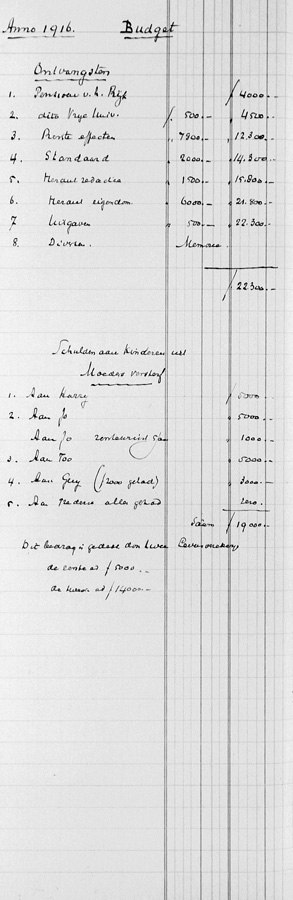 Anno 1916. Budget
Ontvangsten
1. Pensioen v. h. Rijk f 4000.-
2. dito Vrije Univ. f 500.- " 4500.-
3. Rente effecten " 7800.- " 12.300.-
4. Standaard " 2000.- " 14.300.-
5. Heraut redactie " 1500.- " 15.800.-
6. Heraut eigendom " 6000.- " 21.800.-
7 Uitgaven " 500.- " 22.300.-
8. Diversen. Memorie.
f 22300.-
Schulden aan Kinderen uit
Moeders versterf
1. Aan Harry f 5000.-
2. Aan Jo " 5000.-
Aan Jo " 1000.-
3. Aan Too " 5000.-
4. Aan Guy (f 2000 gehad) " 3000.-
5. Aan Frederic alles gehad zero.
Saam f 19000.-
Dit bedrag is gedekt door twee
de eerste ad f 5000.-
de tweede ad f 14000.-